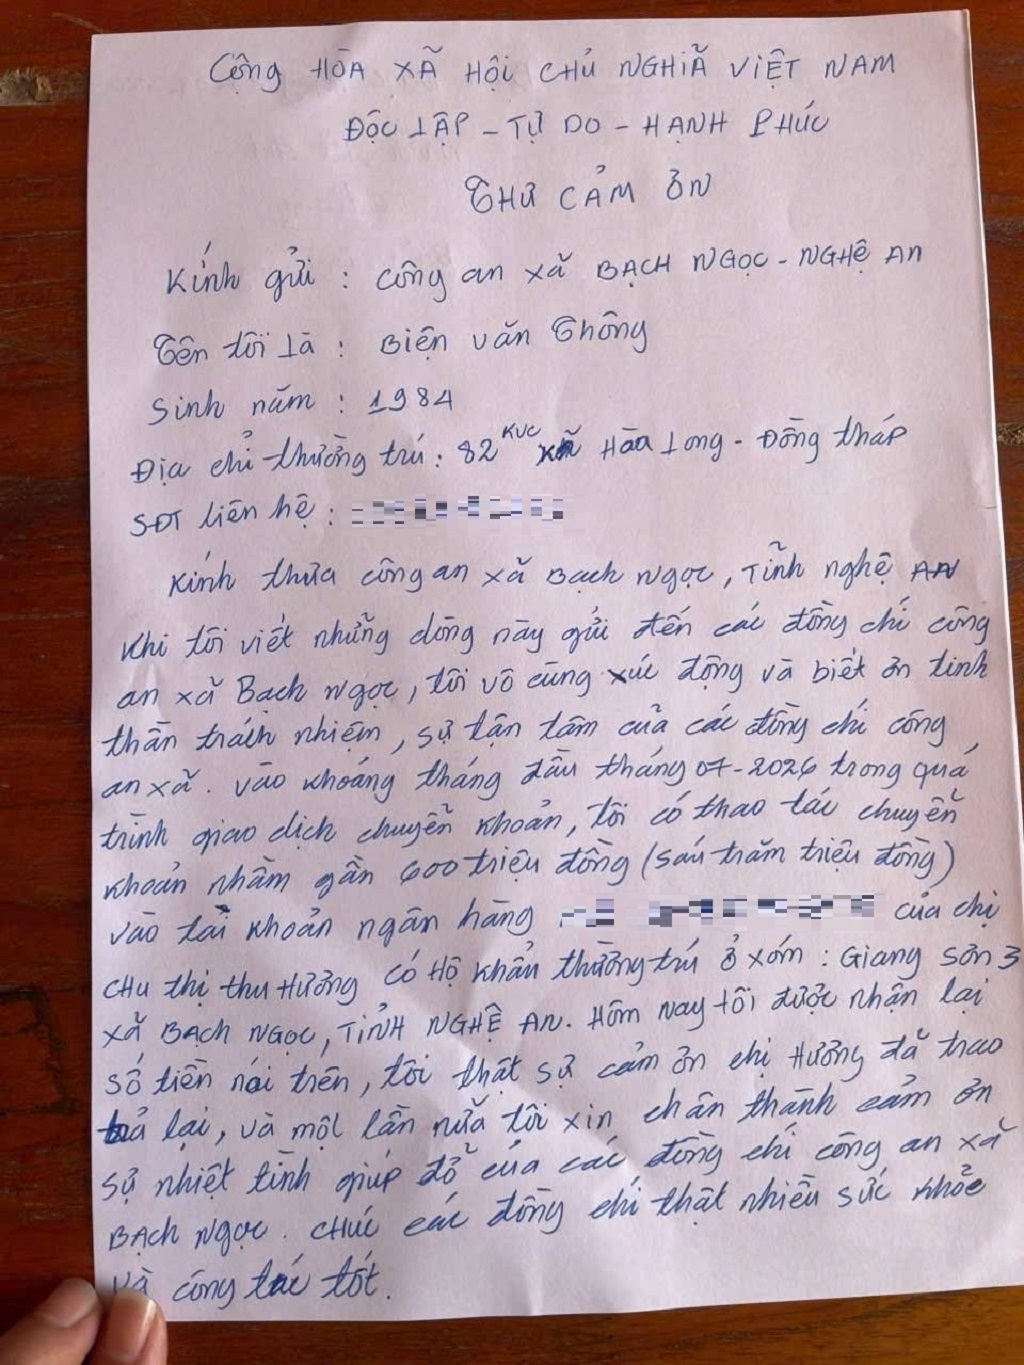 Cộng HÒA XÃ HỘI CHỦ NGHĨA VIỆT NAM
ĐỘC LẬP - TỰ DO - HẠNH PHÚC
THƯ CẢM ƠN
Kính gửi : công an xã BẠCH NGỌC - NGHỆ AN
Tên tôi là : Biện văn Thông
Sinh năm : 1984
Địa chỉ thường trú : 82 KVC Hòa Long - Đồng tháp
SĐT liên hệ :
Kính thưa công an xã Bạch Ngọc, Tỉnh nghệ AN
Khi tôi viết những dòng này gửi đến các đồng chí công
an xã Bạch Ngọc, tôi vô cùng xúc động và biết ơn tinh
thần trách nhiệm, sự tận tâm của các đồng chí công
an xã. vào khoảng tháng đầu tháng 07-2026 trong quá
trình giao dịch chuyển khoản, tôi có thao tác chuyển
khoản nhầm gần 600 triệu đồng (sáu trăm triệu đồng)
vào tài khoản ngân hàng của chị
CHU thị thu Hường có Hộ khẩn thường trú ở xóm : Giang sơn 3
xã BẠCH NGỌC, TỈNH NGHỆ AN. Hôm nay tôi được nhận lại
số tiền nói trên, tôi thật sự cảm ơn chị Hường đã trao
trả lại, và một lần nữa tôi xin chân thành cảm ơn
sự nhiệt tình giúp đỡ của các đồng chí công an xã
BẠCH NGỌC. CHÚC các đồng chí thật nhiều sức khỏe
và công tác tốt.